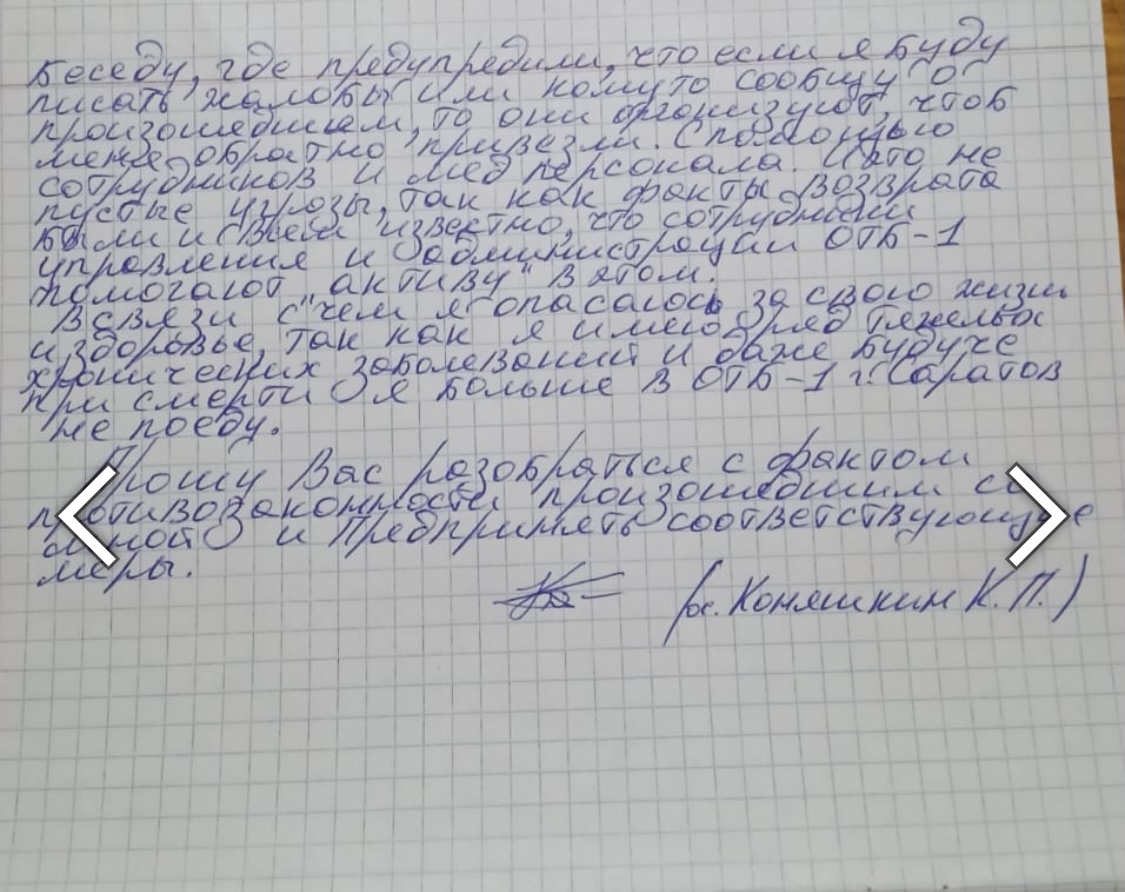 беседу, где предупредили, что если я буду
писать жалобы или кому то сообщу о
произошедшем, то они организуют, чтоб
меня обратно привезли. С помощью
сотрудников и мед персонала. И это не
пустые угрозы, так как факты возврата
были и всем известно, что сотрудники
управления и администрации ОТБ-1
помогают "активу" в этом.
В связи с чем я опасаюсь за свою жизнь
и здоровье, так как я имею ряд тяжелых
хронических заболеваний и даже будуче
при смерти я больше в ОТБ-1 г. Саратов
не поеду.
Прошу Вас разобраться с фактом
противозаконности произошедшим со
мной и предпринять соответствующие
меры.
(ос. Коняшкин К. П.)